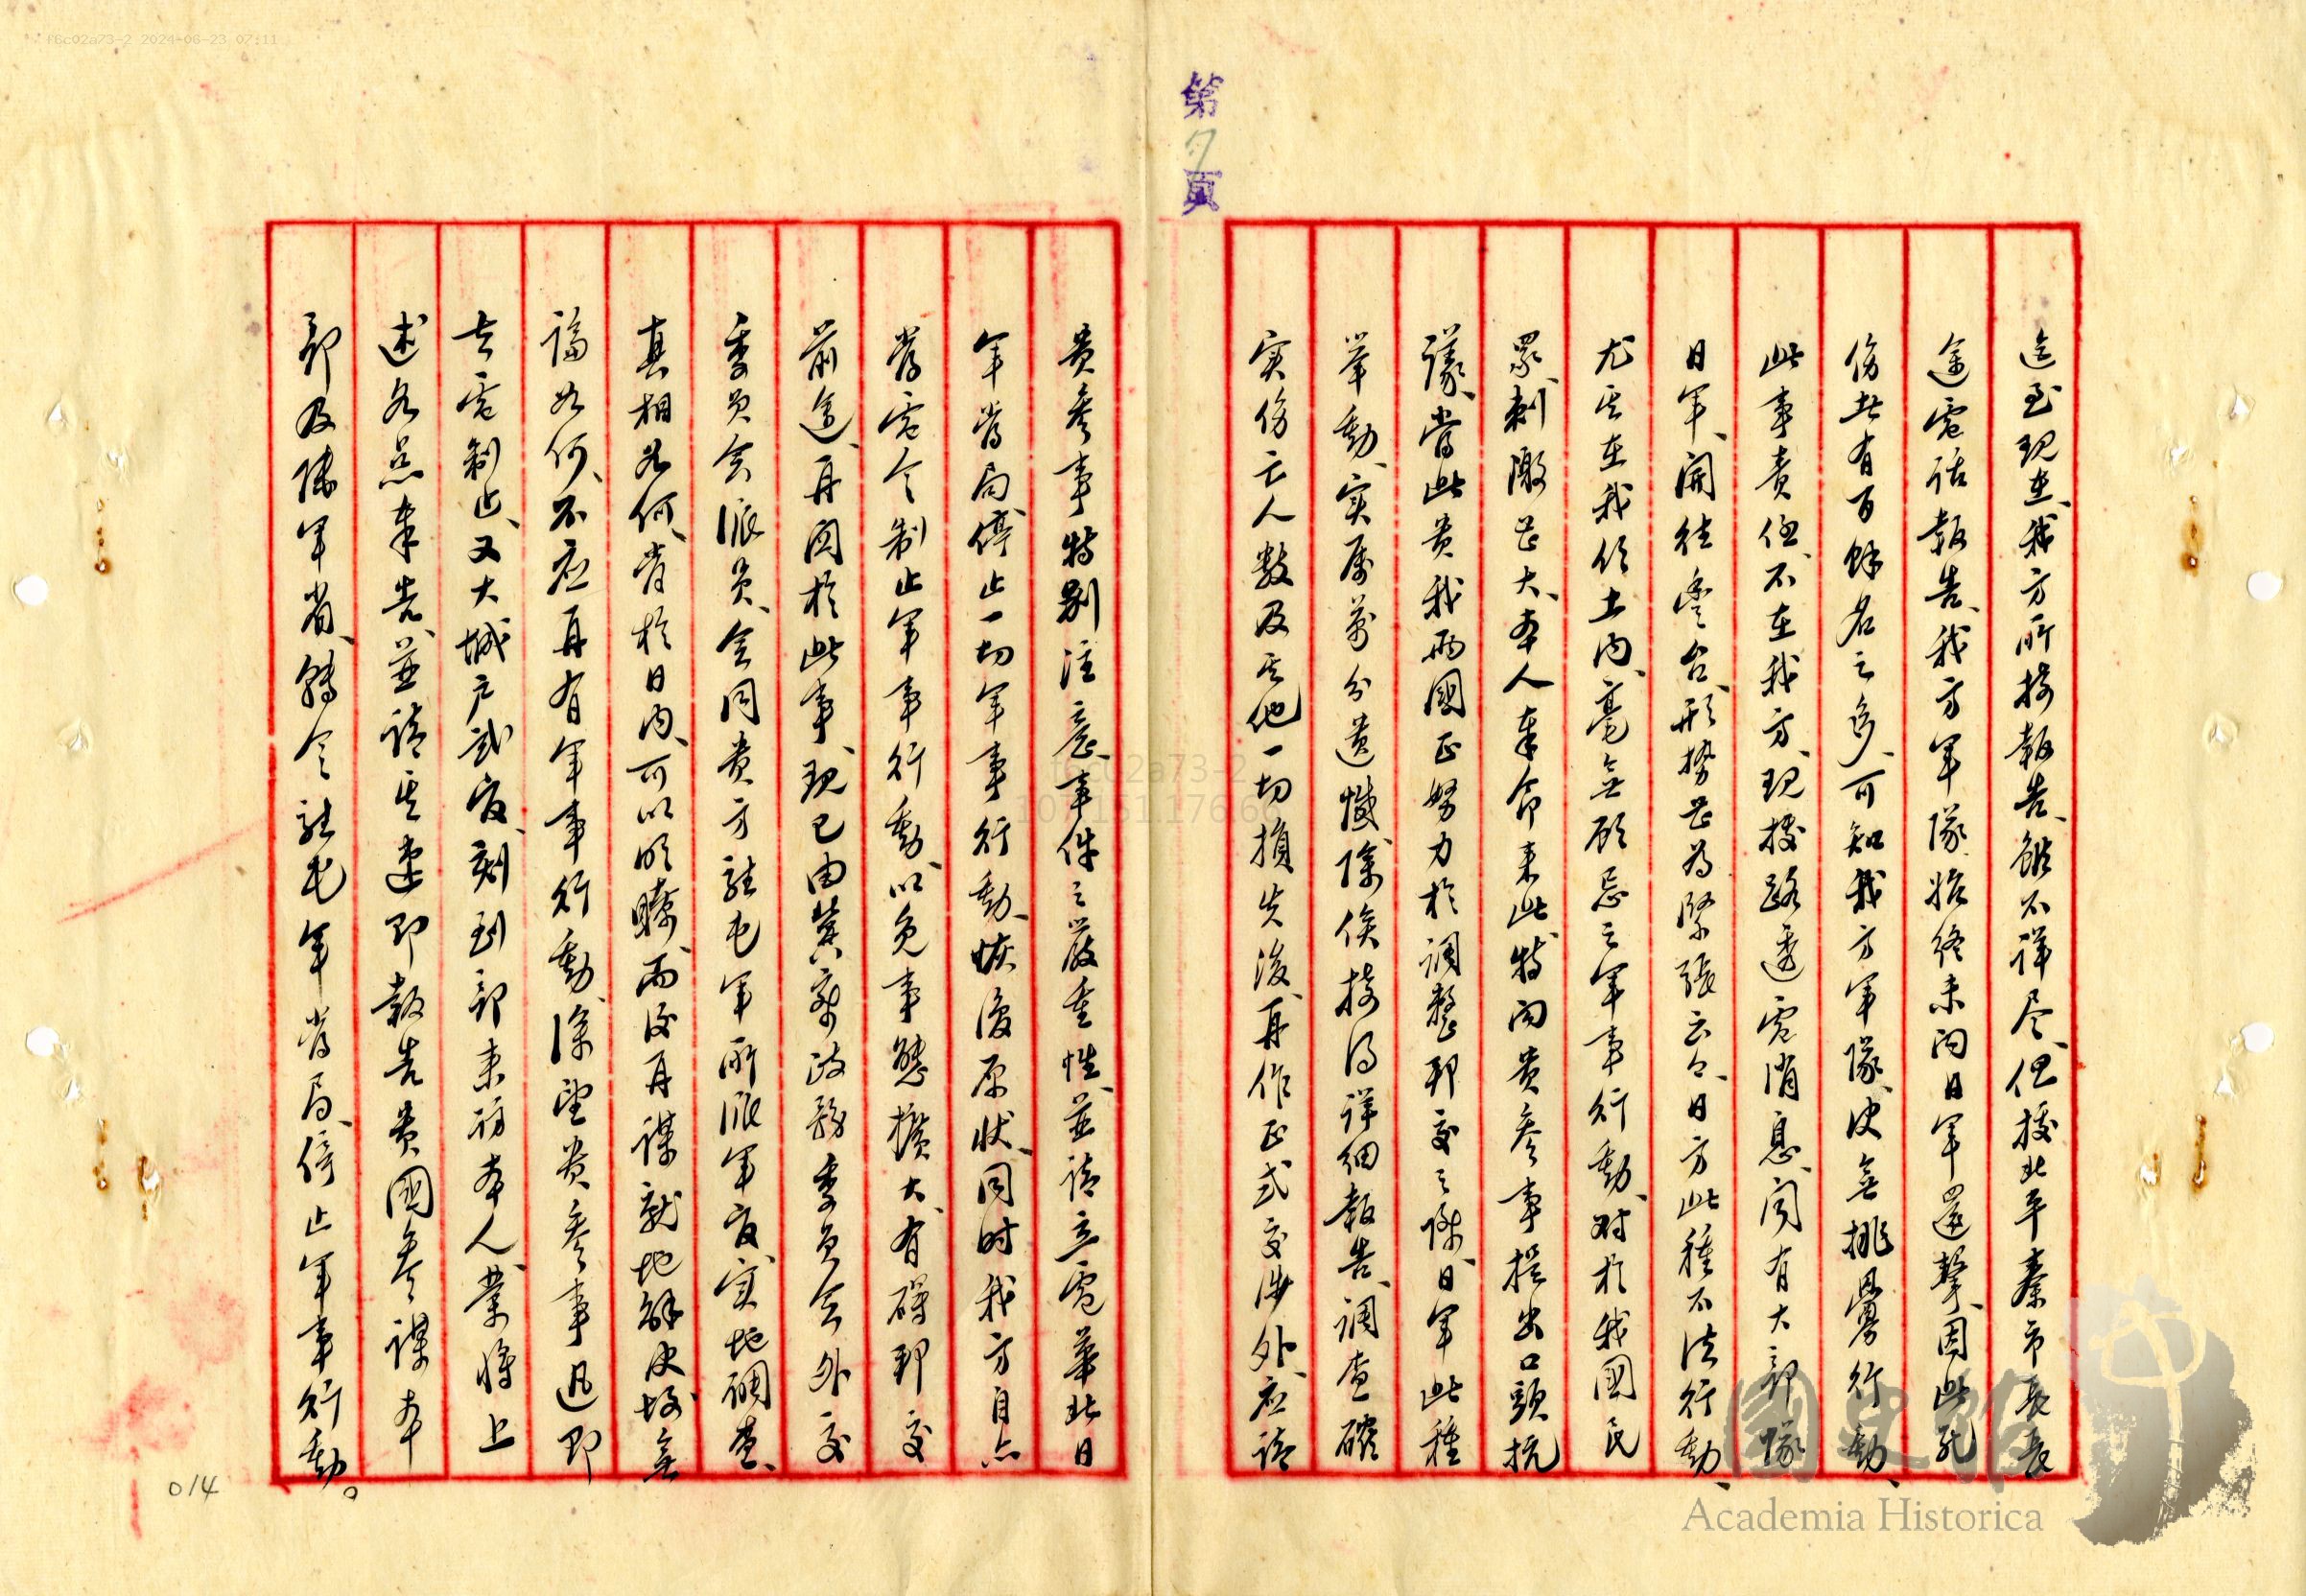 f8c02a73-2 2024-06-23 07:11
第7頁
迄至現在、我方所接報告、雖不詳尽、但據北平秦市長長
途電話報告、我方軍隊始終未向日軍還擊、因此死
傷者有百餘名之多、可知我方軍隊、決無挑釁行動、
此事責任、不在我方、現接路透電消息、閱有大部隊
日軍、開往豐台、形勢甚為緊張云云、日方此種不法行動、
尤其在我領土內、毫無顧忌之軍事行動、对於我國民
眾、刺激甚大、本人奉命来此、特向貴參事提出口頭抗
議、當此貴我兩國正努力於調整邦交之際、日軍此種
舉動、实屬萬分遺憾、除俟接得詳細報告、調查確
实傷亡人數及其他一切損失後、再作正式交涉外、应請
貴參事特別注意、事件之嚴重性、並請立電華北日
軍當局、停止一切軍事行動、恢復原狀、同时我方自亦
當電令制止軍事行動、以免事態擴大、有礙邦交
前途、再関於此事、現已由冀察政務委員会外交
委員会派員、会同貴方駐屯軍所派軍官、实地調查、
真相如何、當於日内、可以明瞭、而後再謀就地解決、故無
論如何、不应再有軍事行動、深望貴參事迅即
去電制止、又大城戶武官、刻到部来訪本人、業將上
述各点奉告、並請其速即報告貴國參謀本
部及陸軍省、轉令駐屯軍當局、停止軍事行動。
014
國史館
Academia Historica